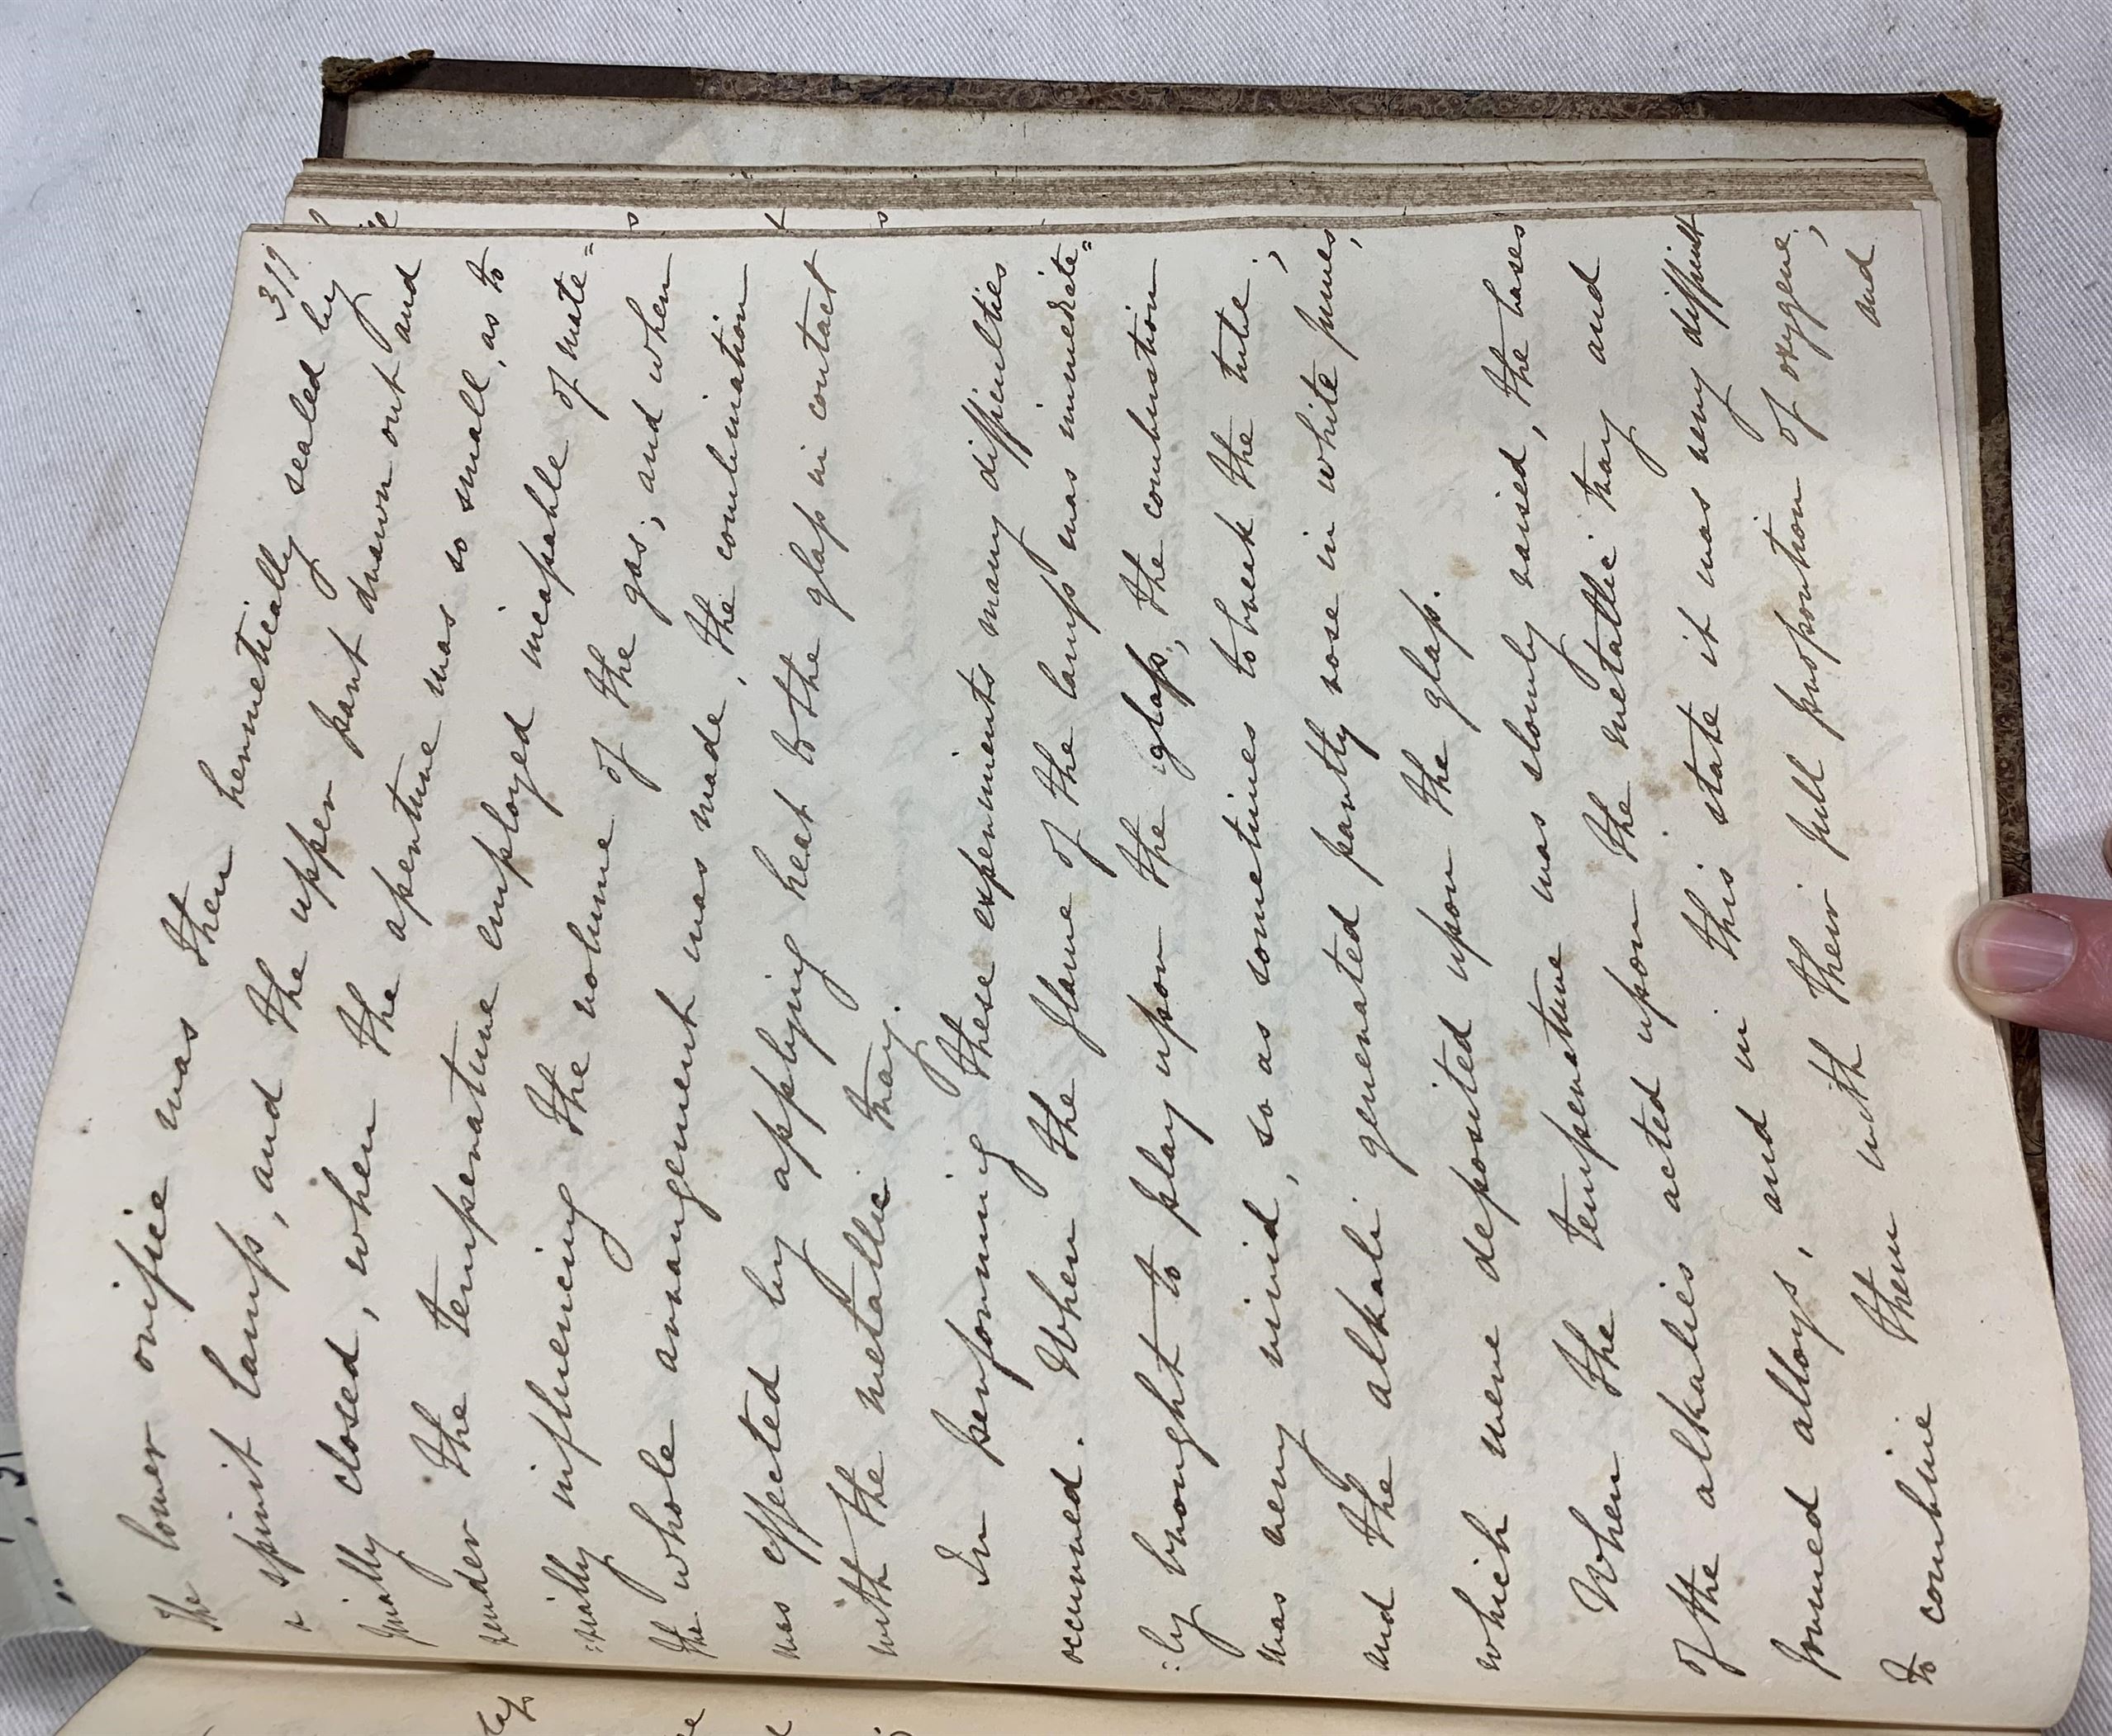 319
The lower orifice was then hermetically sealed by
a spirit lamp, and the upper part drawn out and
finally closed, when the aperture was so small, as to
render the temperature employed incapable of mate=
:rially influencing the volume of the gas; and when
the whole arrangement was made, the combination
was effected by applying heat to the glass in contact
with the metallic tray.
In performing these experiments many difficulties
occurred. When the flame of the lamp was immediate=
:ly brought to play upon the glass, the combustion
was very vivid, so as sometimes to break the tube;
and the alkali generated partly rose in white fumes,
which were deposited upon the glass.
When the temperature was slowly raised, the bases
of the alkalies acted upon the metallic tray and
formed alloys, and in this state it was very difficult
to combine them with their full proportion of oxygene;
and